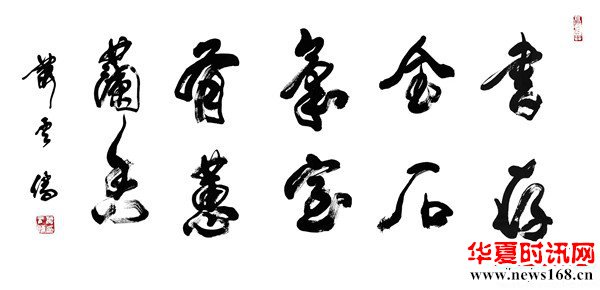 書存
金石
氣室
有蕙
蘭香
华夏时讯网
www.news168.com.cn